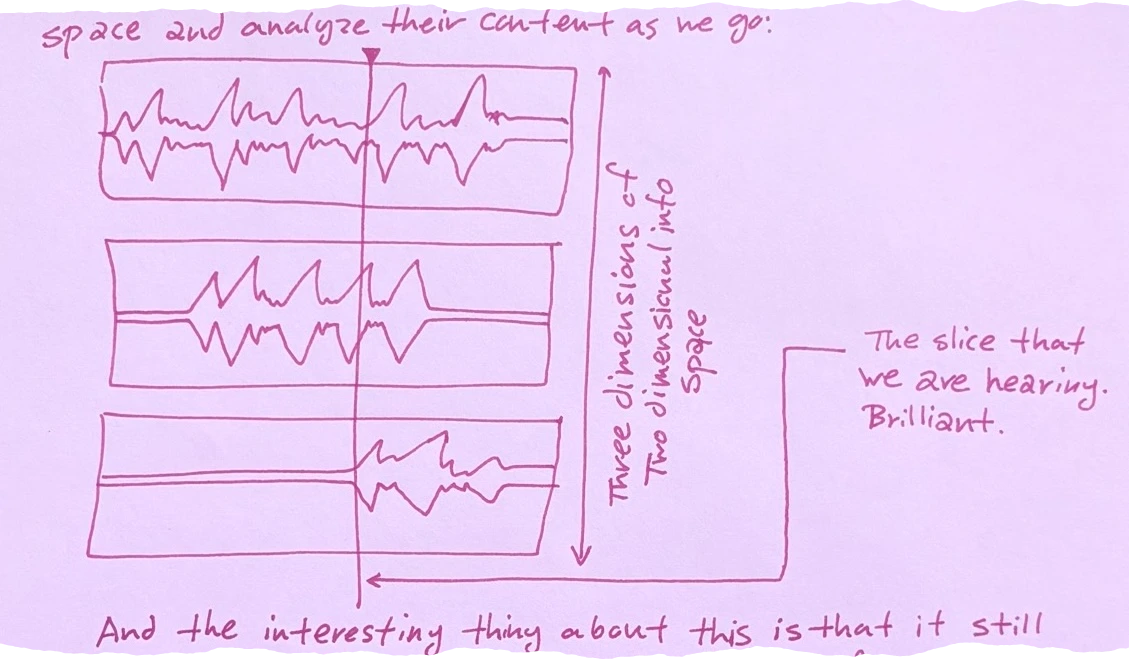 space and analyze their content as we go:
Three dimensions of
Two dimensional info
Space
The slice that
we are hearing.
Brilliant.
And the interesting thing about this is that it still